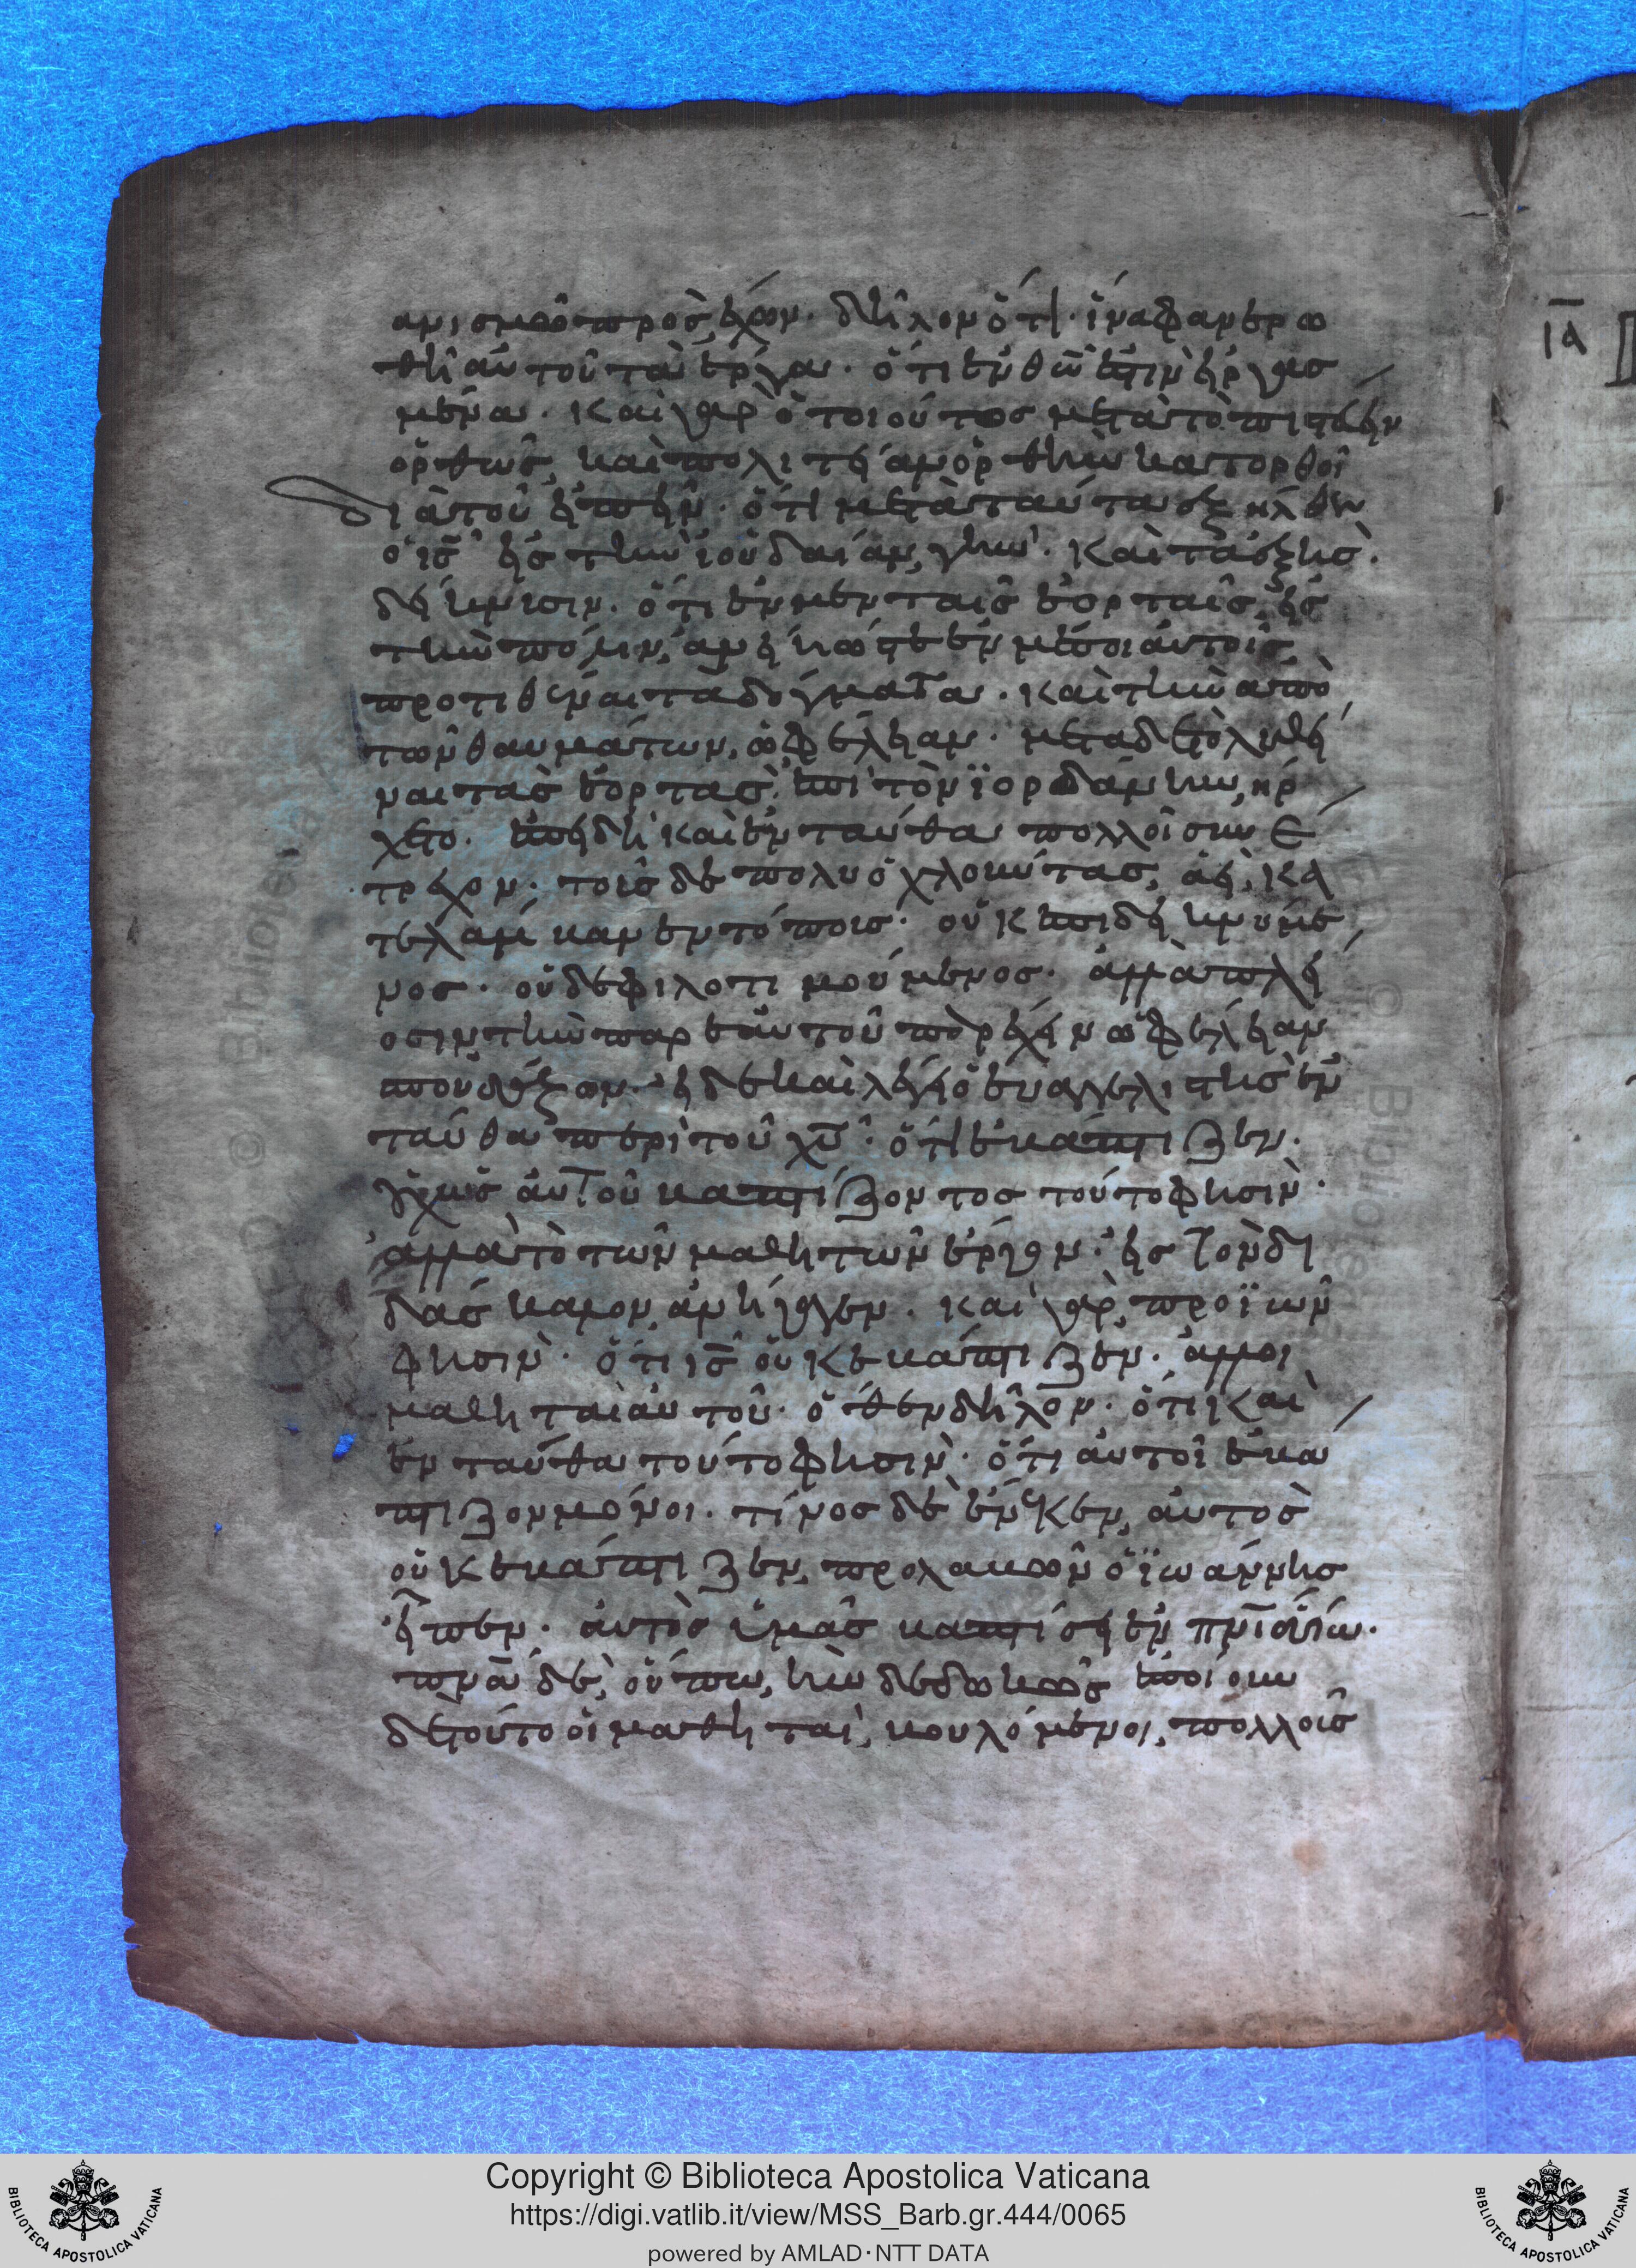 ανισμὸ πρὸς ἔχων. δῆλον ὅτι. ἵνα φανερω
θῆ αὐτοῦ τὰ ἔργα. ὅτι ἐν θῶ ἐστιν εἰργασ
μένα. καὶ γὰρ ὁ τοιοῦτος μετὰ τὸ πιστεύειν
ὀρθῶς, καὶ πολιτείαν ὀρθὴν κατορθοῖ
διατοῦ εἰπεῖν. ὅτι μετὰ ταῦτα ἐξῆλθεν
ὁ ις εἰς τὴν ἰουδαίαν γῆν. καὶ τὰ ἑξῆς.
δείκνυσιν. ὅτι ἐν μεν ταῖς ἑορταῖς, εἰς
τὴν πόλιν, ἀνείη ὥστε ἐν μέσοι αὐτοῖς,
προτιθέναι τὰ δόγματα. καὶ τὴν ἀπὸ
τῶν θαυμάτων, ὠφέλειαν. μετα δε τὸ λυθῆ
ναι τὰς ἑορτας, ἐπὶ τὸν ϊορδάνην, ἤρ
χετο. ἐπειδὴ καὶ ἐνταῦθα πολλοὶ συνέ
τρεχον. τοὺς δὲ πολυοχλοῦντας, ἀεὶ, κα
τελάμβανεν τόποις. οὐκ ἐπιδεικνύμε
νος. οὐδὲ φιλοτιμούμενος. ἀλλὰ πλεί
οσιν τὴν παρ ἑαυτοῦ παρέχειν ὠφέλειαν
σπουδάζων. εἰ δε καὶ λέγει ὁ εὐαγγελιστὴς ἐν
ταῦθα περὶ τοῦ χυ. ὅτι ἐβάπτιζεν.
οὐχ ὡς αὐτοῦ βαπτίζοντος τοῦτο φησιν.
ἀλλὰ τὸ τῶν μαθητῶν ἔργον. εἰς τὸν δι
δάσκαλον, ἀνήγαγεν. καὶ γὰρ, προϊὼν
φησιν. ὅτι ις οὐκ ἐβάπτιζεν. ἀλλ οι
μαθηταὶ αὐτοῦ. ὅθεν δῆλον. ὅτι καὶ
ἐνταῦθα τοῦτο φησιν. ὅτι αὐτοὶ ἐβά
πτιζον μόνοι. τίνος δὲ ἕνεκεν, αὐτὸς
οὐκ ἐβάπτιζεν, προλαβὼν ὁ ϊωάννης
εἶπεν. αὐτὸς ὑμᾶς βαπτίσει ἐν πνι ἁγίω.
πνα δὲ, οὔπω, ἦν δεδωκὼς ἐποίουν
δε τοῦτο οἱ μαθηταὶ, βουλόμενοι, πολλοῖς
ια
Copyright © Biblioteca Apostolica Vaticana
https://digi.vatlib.it/view/MSS_Barb.gr.444/0065
powered by AMLAD·NTT DATA
BIBLIOTECA APOSTOLICA VATICANA
BIBLIOTECA APOSTOLICA VATICANA